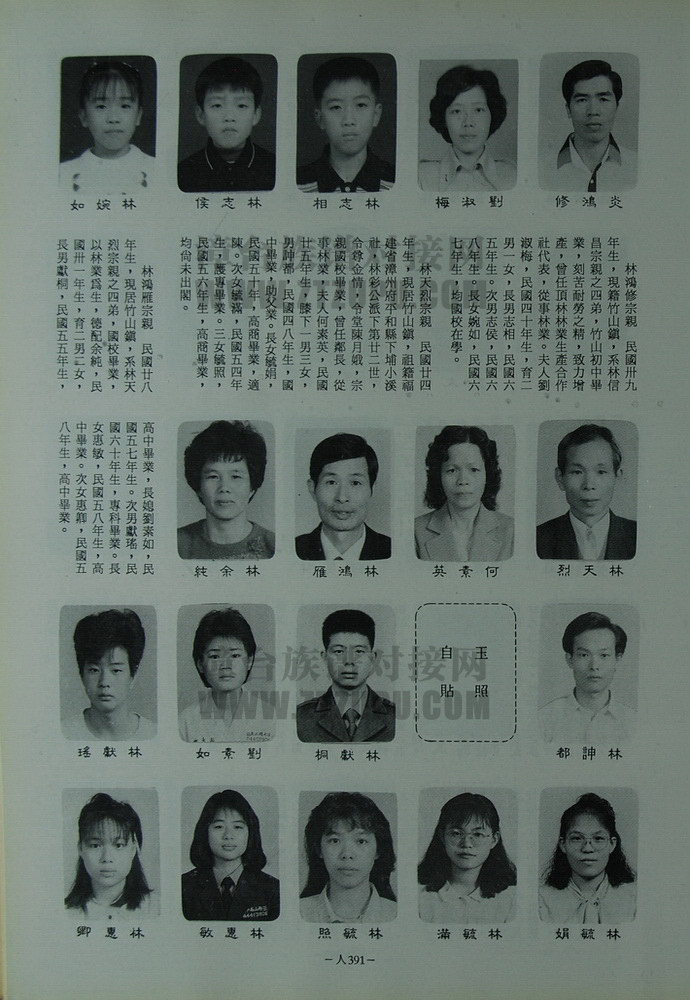 炎鴻修
劉淑梅
林志相
林志侯
林婉如
林鴻修宗親　民國卅九
年生，現籍竹山鎮，系林信
昌宗親之四弟，竹山初中畢
業，刻苦耐勞之精，致力增
產，曾任頂林林業生產合作
社代表，從事林業。夫人劉
淑梅，民國四十年生，育二
男一女，長男志相，民國六
五年生。次男志侯，民國六
八年生。長女婉如，民國六
七年生，均國校在學。
林天烈宗親　民國廿四
年生，現居竹山鎮，祖籍福
建省漳州府平和縣下埔小溪
社，林彩公派下第廿二世，
令尊金情，令堂陳月娥，宗
親國校畢業，曾任鄰長，從
事林業。夫人何素英，民國
廿五年生，膝下一男三女，
男訷都，民國四八年生，國
中畢業，助父業。長女毓娟，
民國五十年，高商畢業，適
陳。次女毓滿，民國五四年
生，護專畢業。三女毓照，
民國五六年生，高商畢業，
均尚未出閣。
林鴻雁宗親　民國廿八
年生，現居竹山鎮，系林天
烈宗親之四弟，國校畢業，
以林業爲生，德配余純，民
國卅一年生，育二男二女，
長男獻桐，民國五五年生，
高中畢業，長媳劉素如，民
國五七年生。次男獻瑤，民
國六十年生，專科畢業。長
女惠敏，民國五八年生，高
中畢業。次女惠卿，民國五
八年生，高中畢業。
林天烈
何素英
林鴻雁
林余純
林訷都
玉照
自貼
林獻桐
劉素如
林獻瑤
林毓娟
林毓滿
林毓照
林惠敏
林惠卿
－人391－
台族谱对接网
WWW.
.COM